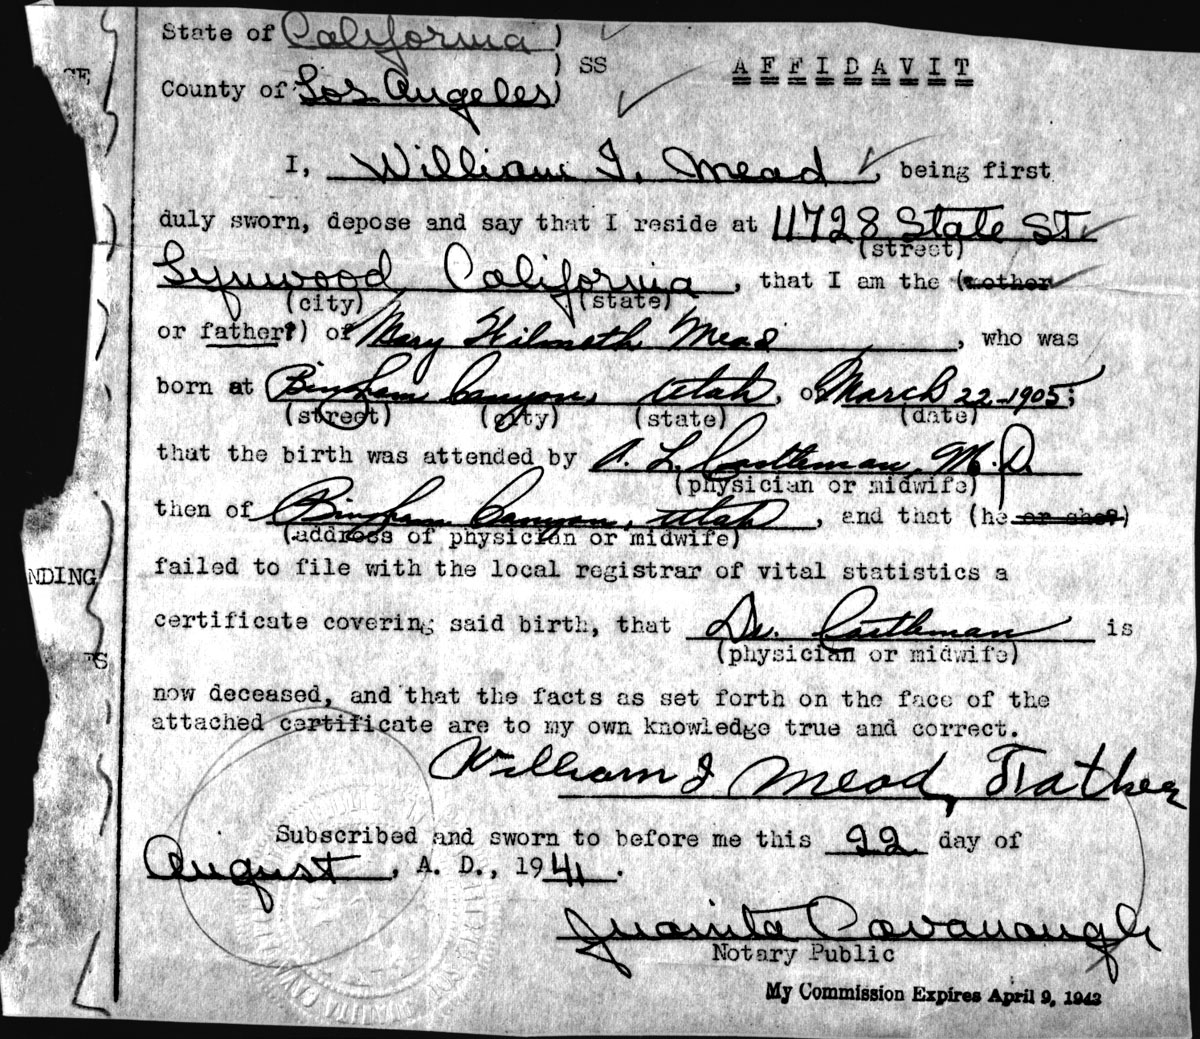 State of California )
) SS AFFIDAVIT
County of Los Angeles )
CE
I, William I. Mead, being first
duly sworn, depose and say that I reside at 11728 State St.
(street)
Lynwood California, that I am the (mother
(city) (state)
or father?) of Mary Hilmeth Mead, who was
born at Bingham Canyon, Utah, on March 22-1905;
(street) (city) (state) (date)
that the birth was attended by A. L. Castleman, M.D.
(physician or midwife)
then of Bingham Canyon, Utah, and that (he or she?)
(address of physician or midwife)
NDING
failed to file with the local registrar of vital statistics a
certificate covering said birth, that Dr. Castleman is
(physician or midwife)
now deceased, and that the facts as set forth on the face of the
attached certificate are to my own knowledge true and correct.
William I Mead, Father
Subscribed and sworn to before me this 22 day of
August, A. D., 1941.
Juanita Cavanaugh
Notary Public
My Commission Expires April 9, 1943